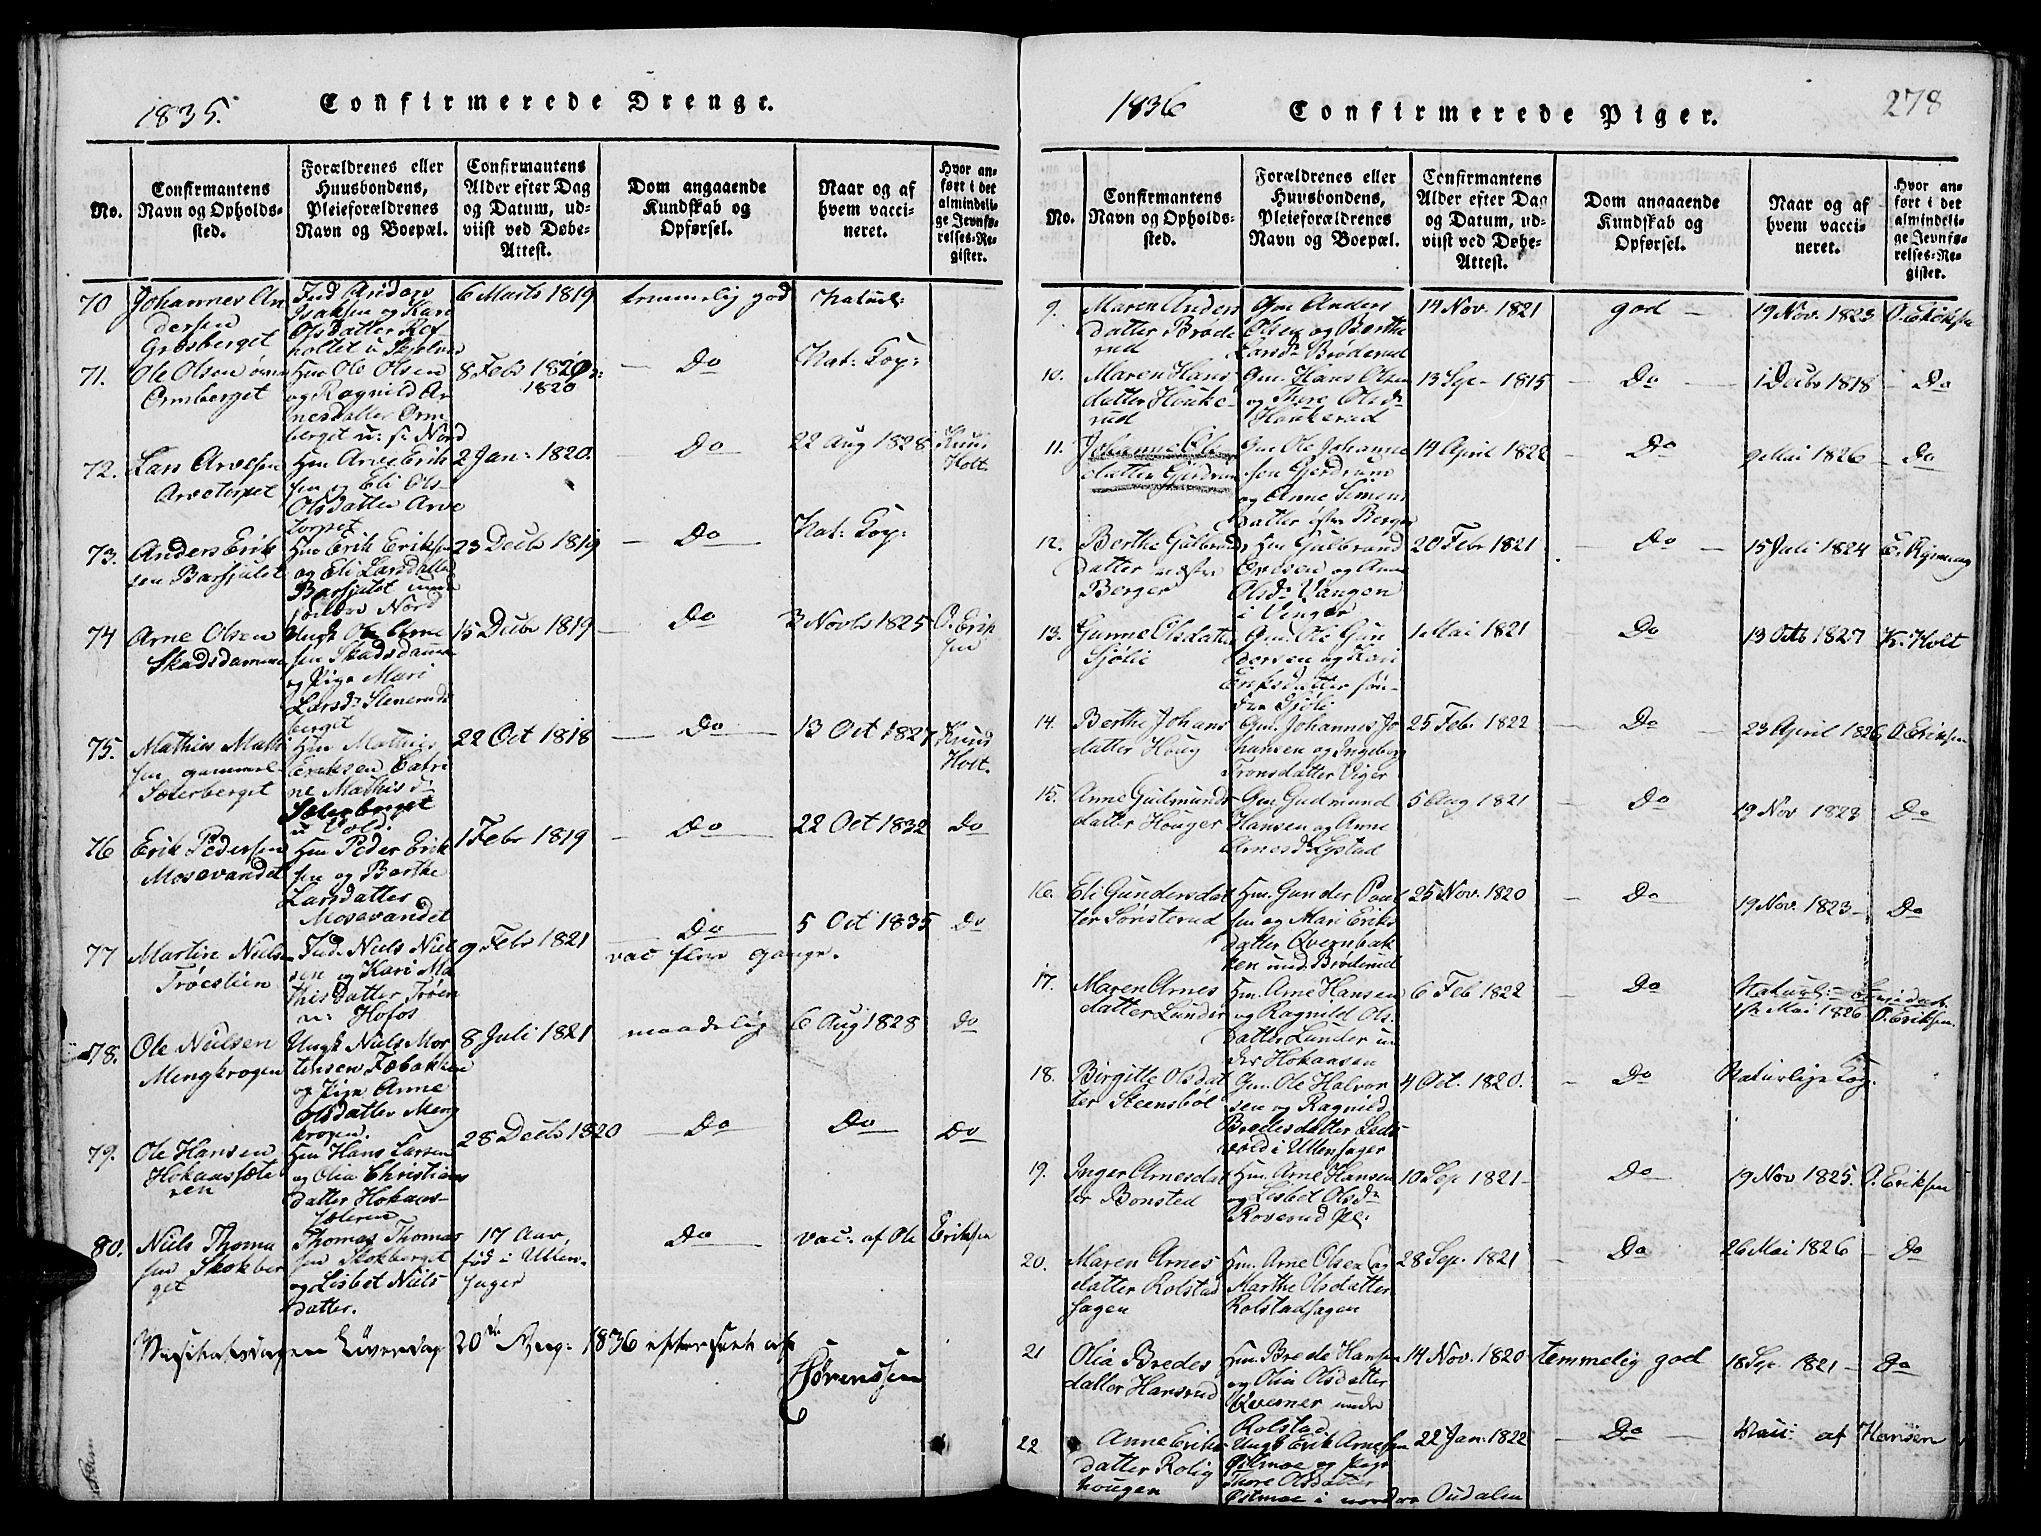 1835.
Confirmerede Drenge.
No.
Confirmantens
Navn og Opholds-
sted.
Forældrenes eller
Huusbondens,
Pleieforældrenes
Navn og Boepæl.
Confirmantens
Alder efter Dag
og Datum, ud-
viist ved Døbe-
Attest.
Dom angaaende
Kundskab og
Opførsel.
Naar og af
hvem vacci-
neret.
Hvor an-
ført i det
almindeli-
ge Jevnfø-
relses-Re-
gister.
70 Johannes An
dersen
Grosberget
Ind Anders
Isaksen og Kari
Olsdatter
6 Marts 1819
temmelig god
Naturl:
71. Ole Olsen
Ormberget
Hm Ole Olsen
og Ragnild Ar
nesdatter Orm
berget u: f: Nord
8 Febr 1820
1820
Do
Nat: Kop:
72. Lars Arvesen
Arvetorpet
Hm Arve Erik
sen og Eli Ols-
Olsdatter Arve
torpet
2 Jan: 1820.
Do
22 Aug 1828
Knud
Holt.
73. Anders Erik
sen Barfjulet
Hm Erik Eriksen
og Eli Larsdatter
Barfjulet
Nord
23 Decbr 1819
Do
Nat: Kop:
74 Arne Olsen
Skadsdammen
Ungk Ole Arne
sen Skadsdamm
og Pige Mari
Larsd: Stenerud
berget
15 Decbr 1819
Do
3 Novbr 1825
O. Erik
sen
75. Mathis Mathi
sen gammel
Sæterberget
Hm Mathis
Eriksen Catri
ne Mathisd:
Sæterberget
u Vold.
22 Oct 1818
Do
13 Oct 1827
Knud
Holt.
76 Erik Pedersen
Mosevandet
Hm Peder Erik
sen og Berthe
Larsdatter
Mosevandet
1 Febr 1819
Do
22 Oct 1832
Do
77 Martin Niels
Trøeslien
Ind. Niels Niel
sen og Kari Ma
thisdatter Trøen
u: Hofos
9 Febr 1821
Do
vac flere gange.
5 Oct 1835
Do
78. Ole Nielsen
Mengkrogen
Ungk Niels Mor
tensen Fæbakken
og Pige Anne
Olsdatter Meng
krogen.
8 Juli 1821
maadelig
6 Aug 1828
Do
79. Ole Hansen
Hokaassæte
ren
Hm Hans Larsen
og Olia Christians
datter Hokaas-
sæteren
28 Decbr 1820
Do
Do
Do
80. Niels Thoma
sen Skokber
get
Thomas Thomas
sen Skokberget
og Lisbet Niels
datter.
17 Aar,
fød i Ullen-
sager
Do
vac: af Ole Eriksen
Visitatsdagen Løverdag 20de Aug: 1836 efterseet af
Sørenssen
1836
Confirmerede Piger.
278
No.
Confirmantens
Navn og Opholds-
sted.
Forældrenes eller
Huusbondens,
Pleieforældrenes
Navn og Boepæl.
Confirmantens
Alder efter Dag
og Datum, ud-
viist ved Døbe-
Attest.
Dom angaaende
Kundskab og
Opførsel.
Naar og af
hvem vacci-
neret.
Hvor an-
ført i det
almindeli-
ge Jevnfø-
relses-Re-
gister.
9. Maren Anders
datter Brøde
rud
Gm Anders
Olsen og Berthe
Larsd: Brøderud
14 Nov. 1821
god
19 Nov. 1823
O. Eriksen
10. Maren Hans
datter Houke-
rud
Gm. Hans Olsen
og Thore Olsd:
Houkerud
13 Sep- 1815
Do
1 Decbr 1818
Do
11. Johanne Ole
datter Gjerdrum
Gm Ole Johanne
sen Gjerdrum
og Anne Simens
datter østre Berger
14 April 1822
Do
9 Mai 1826
Do
12. Berthe Gulbrand
datter østre
Berger
Hm Gulbrand
Evesen og Anne
Olsd: Vangen
i Vinger
20 Febr 1821
Do
15 Juli 1824
13. Gunne Olsdatter
Sjølie
Gm. Ole Gun
dersen og Kari
Eriksdatter søn-
dre Sjøli
1 Mai 1821
Do
13 Octb 1827
K. Holt
14. Berthe Johans
datter Houg
Gm. Johannes Jo
hansen og Ingeborg
Tronsdatter Viger
25 Febr 1822
Do
23 April 1826
O. Eriksen
15. Anne Gudmunds
datter Houger
Gm Gudmund
Hansen og Anne
Arnesd: Lystad
5 Aug 1821
Do
19 Nov 1823
Do
16. Eli Gundersdat
ter Sørsterud
Hm. Gunder Paul
sen og Mari Eriks
datter Qvernbak
ken und. Brøderud
25 Nov. 1820
Do
19 Nov. 1823
Do
17. Maren Arnes
datter Lunder
Hm. Arne Hansen
og Ragnild Ols-
datter Lunder un
der Hokaasen
6 Feb 1822
Do
Naturl:
1st Mai 1826
O. Eriksen.
18. Birgitte Olsdat
ter Steensbøl
Gm. Ole Halvor
sen og Ragnild
Bredesdatter
vold i Ullensager
4 Oct. 1820.
Do
Naturlige Kop.
19. Inger Arnesdat
ter Bonsted
Hm. Arne Hansen
og Lisbet Olsd:
Roverud pl:
10 Sep 1821
Do
19 Nov 1825.
O. Eriksen
20. Maren Arnes
datter Rolstad
hagen
Hm. Arne Olsen og
Marthe Olsdatter
Rolstadhagen
28 Sep. 1821
Do
26 Mai 1826
Do
21 Olia Bredes
datter Hansrud
Hm. Brede Hansen
og Olia Olsdatter
Qverner under
Rolstad.
14 Nov. 1820
temmelig god
18 Sep. 1821
Do
22 Anne Eriks-
datter Rolig
hougen
Ungk Erik Arnesen
Østmoe og Pige
Thore Olsdatter
Østmoe i nordre Oudalen
22 Jan. 1822
Do
af Hansen